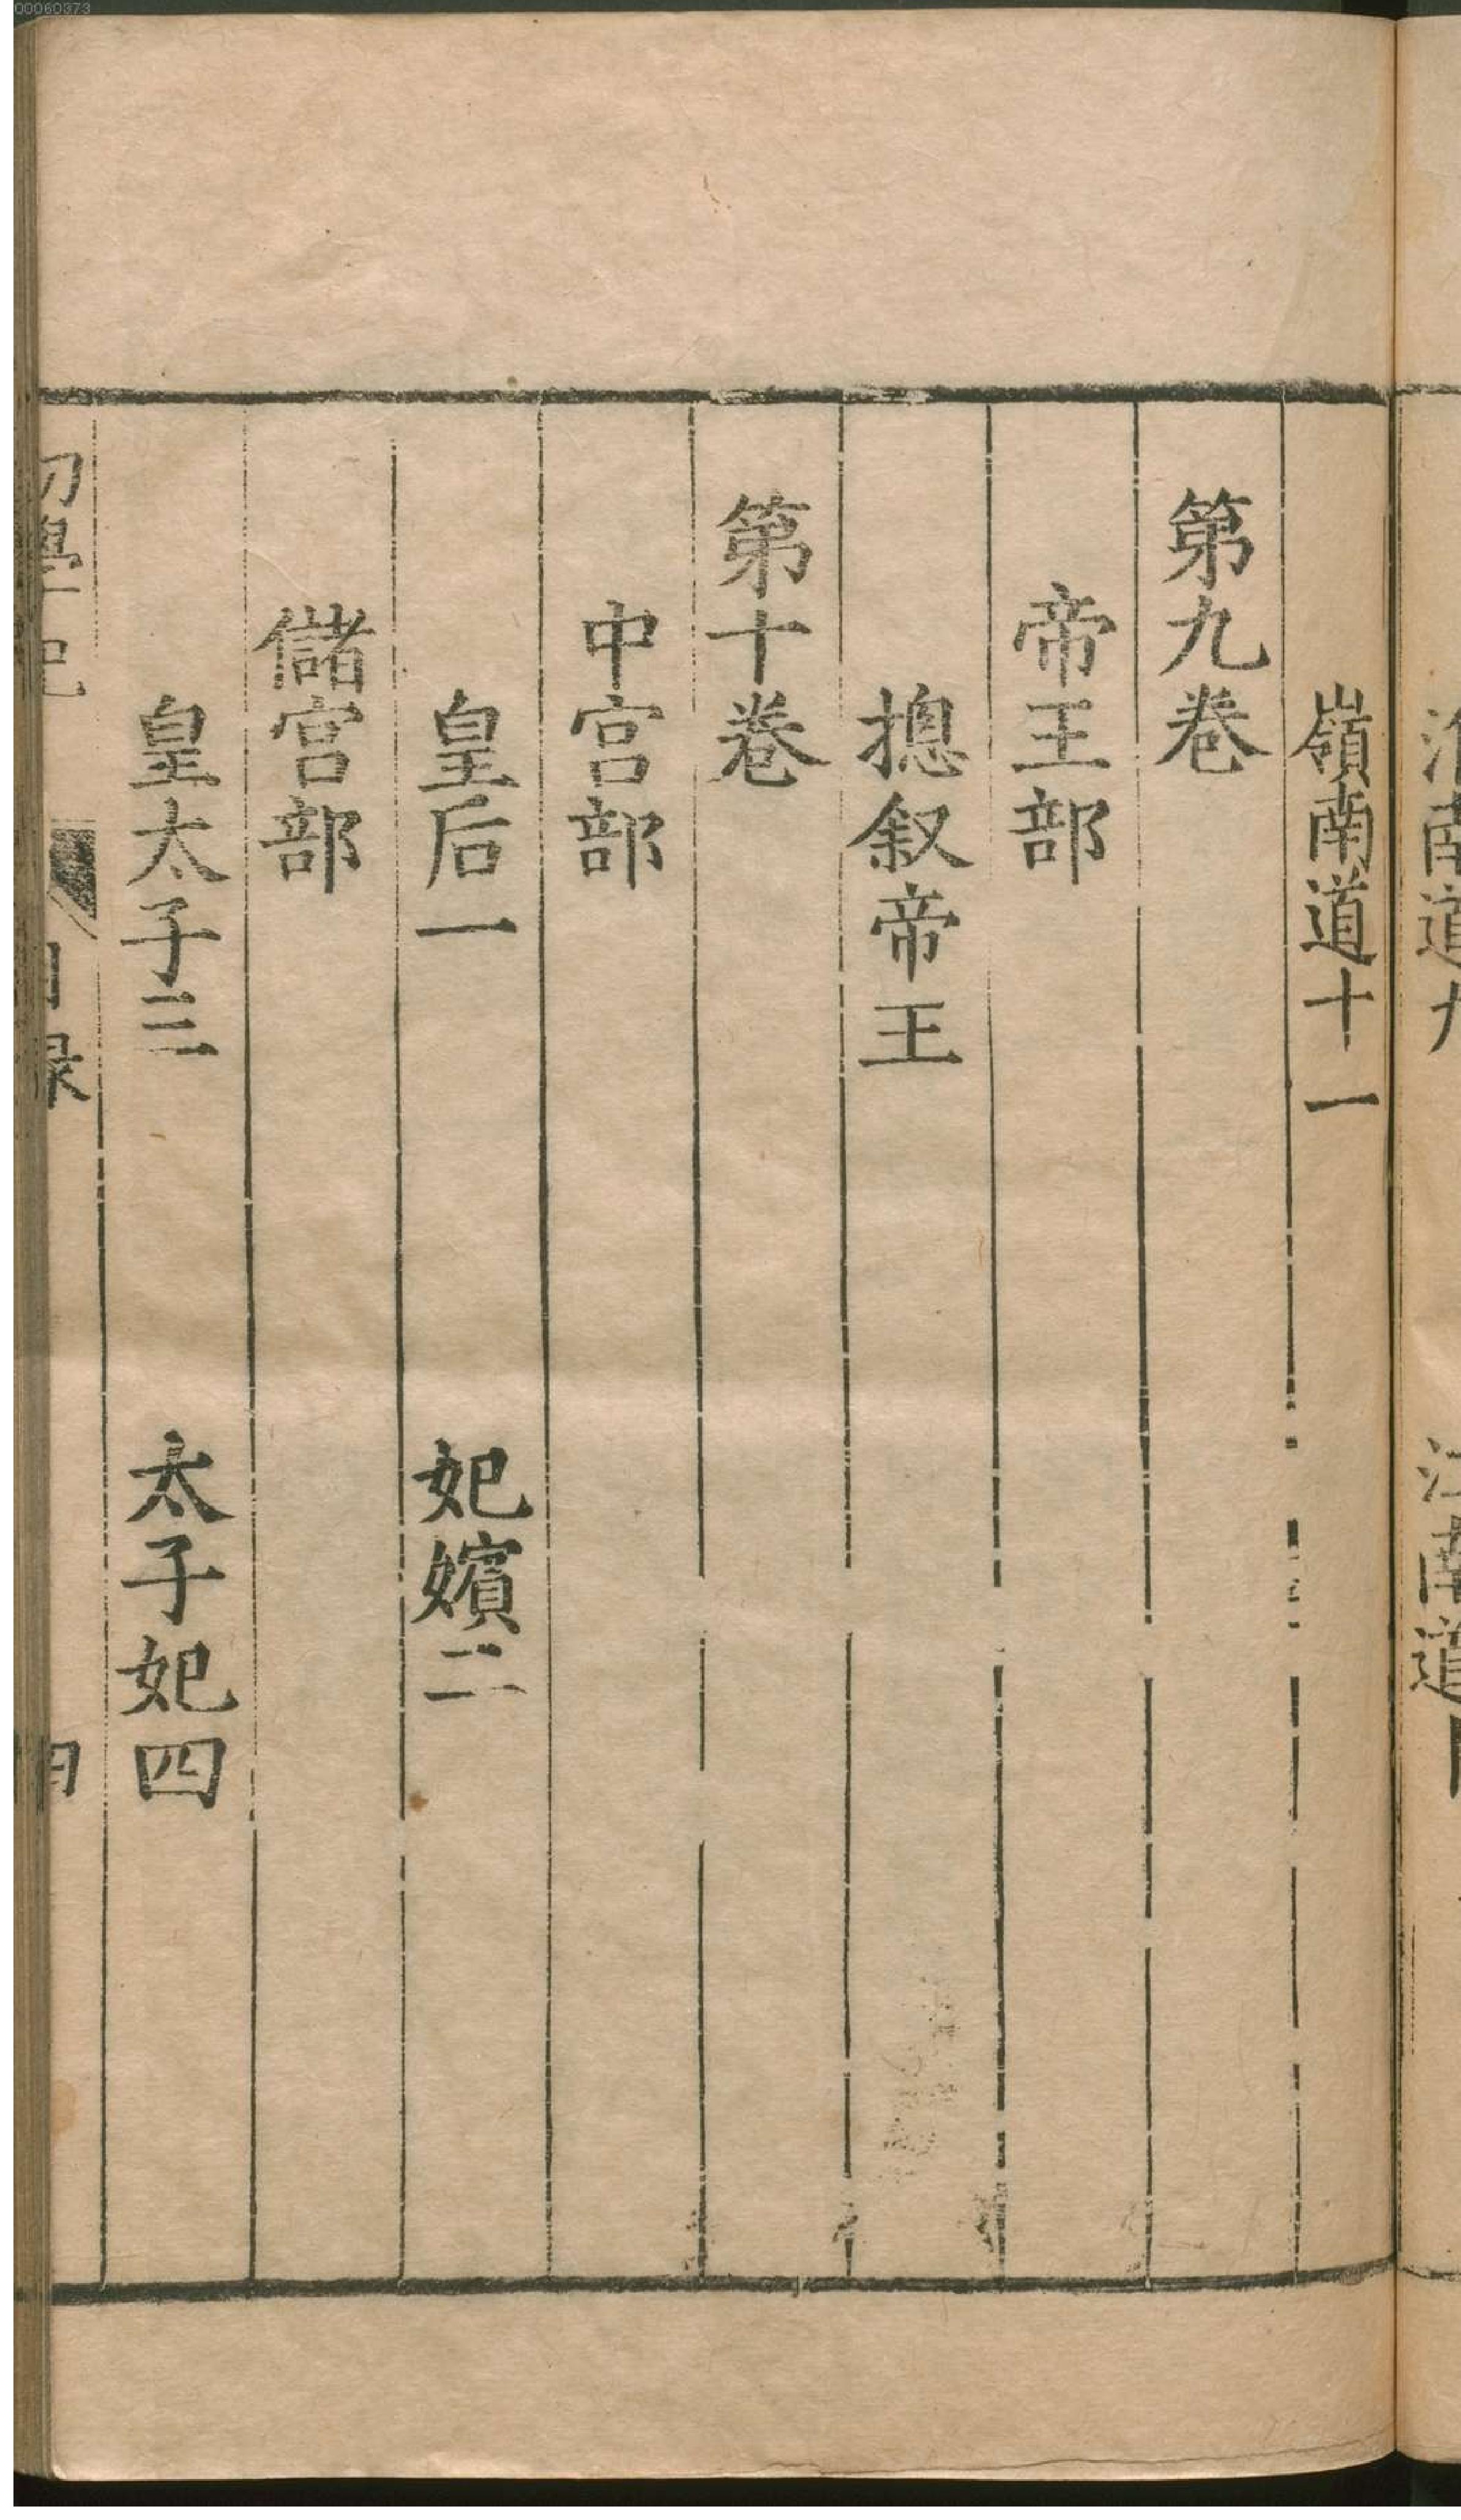 00060373
淮南道九
江南道
嶺南道十一
第九卷
帝王部
摠叙帝王
第十卷
中宫部
皇后一　妃嬪二
儲宫部
皇太子三　太子妃四
初學記　目録　四